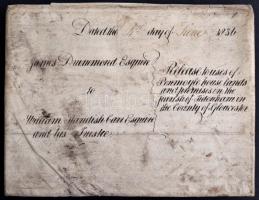 Dated the day of June 1836
James Drummond Esquire
to
William Standish Carr Esquire
and his Trustee
Release to uses of
Penmoyle house lands
and premises in the
parish of Tidenham in
the County of Gloucester